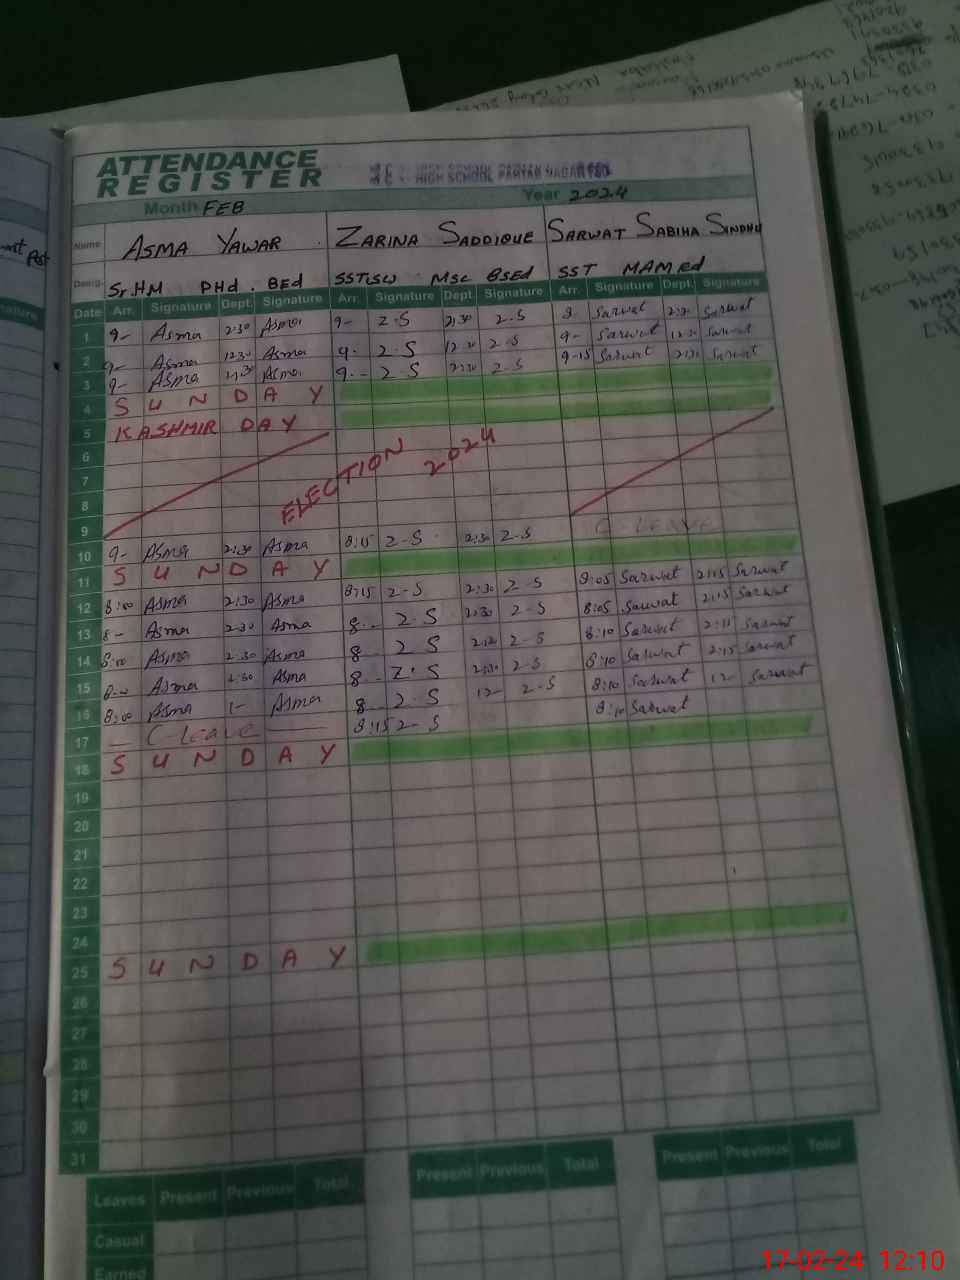 ATTENDANCE
REGISTER
HIGH SCHOOL
Month FEB Year 2024
Name ASMA YAWAR ZARINA SADDIQUE SARWAT SABIHA SINDHU
Desig. Sr.HM PHd. BEd SST SW MSc BSEd SST MA MEd
Date Arr. Signature Dept. Signature Arr. Signature Dept. Signature Arr. Signature Dept. Signature
1 9- Asma 2:30 Asma 9- Z.S 2:30 Z.S 9 Sarwat Sarwat
2 9- Asma 12:30 Asma 9. Z.S 12:30 Z.S 9- Sarwat 12:30 Sarwat
3 9- Asma 2:30 Asma 9-- Z.S 2:30 Z.S 9-15 Sarwat Sarwat
4 SUNDAY
5 KASHMIR DAY
6
7 ELECTION 2024
8
9
10 9- Asma 2:30 Asma 8:15 Z-S 2:30 Z-S C-LEAVE
11 SUNDAY
12 8:00 Asma 2:30 Asma 8:15 Z-S 2:30 Z-S 8:05 Sarwat 2:15 Sarwat
13 8- Asma 2:30 Asma 8-- Z.S 2:30 Z-S 8:05 Sarwat 2:15 Sarwat
14 8:00 Asma 2:30 Asma 8-- Z S Z-S 8:10 Sarwat Sarwat
15 Asma 2:30 Asma 8-- Z.S 2:30 Z-S 8:10 Sarwat 2:15 Sarwat
16 8:00 Asma 1- Asma 8-- Z.S 12- Z-S 8:10 Sarwat 12- Sarwat
17 — C-Leave — 8:15 Z-S 8:10 Sarwat
18 SUNDAY
19
20
21
22
23
24
25 SUNDAY
26
27
28
29
30
31
Leaves Present Previous Total Present Previous Total Present Previous Total
Casual
Earned
17-02-24 12:10